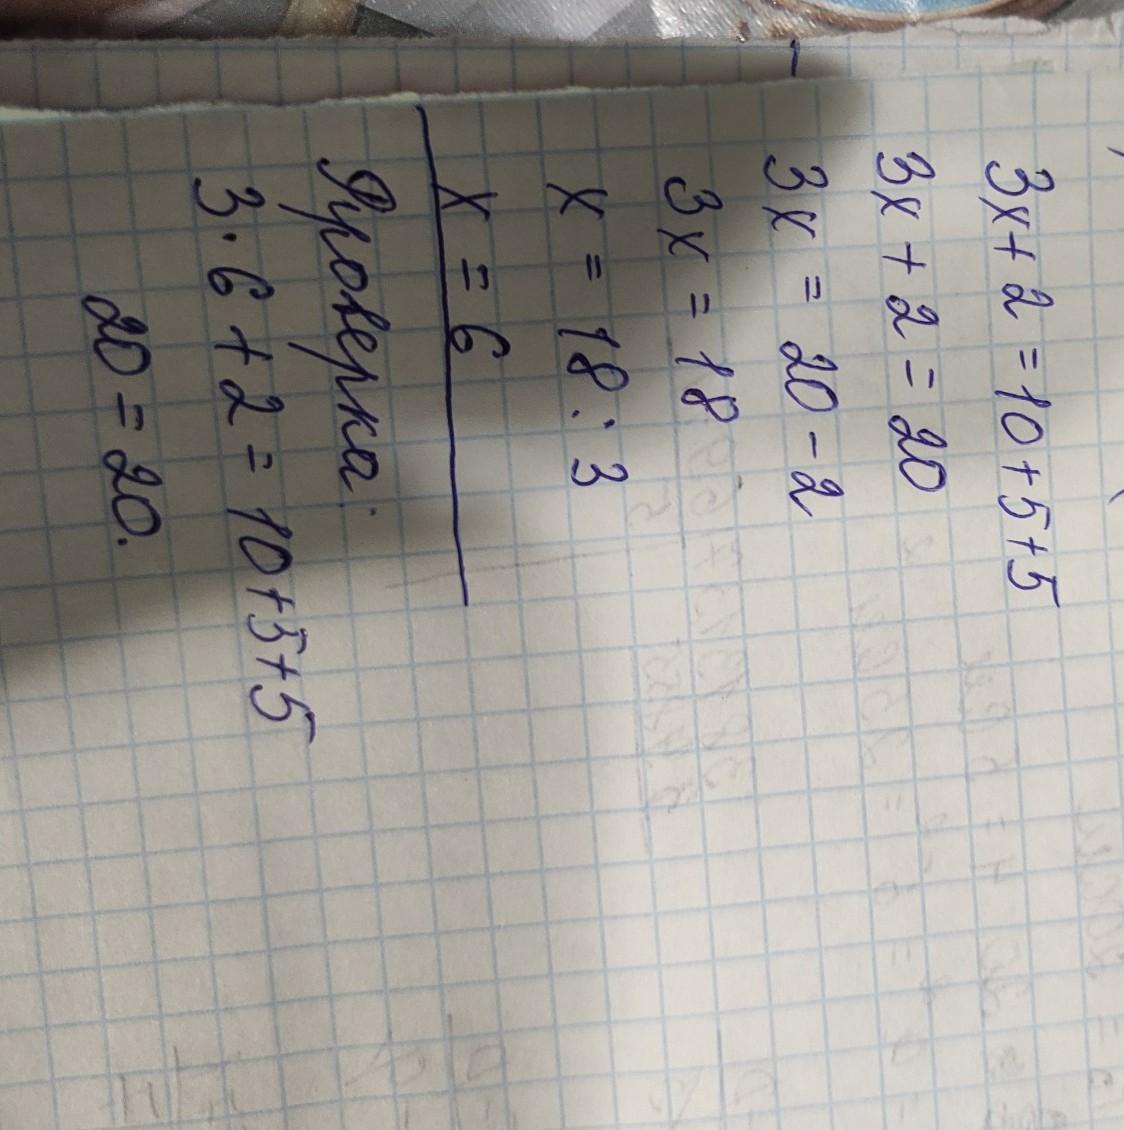 3x + 2 = 10 + 5 + 5
3x + 2 = 20
3x = 20 - 2
3x = 18
x = 18 : 3
x = 6
Проверка:
3 · 6 + 2 = 10 + 5 + 5
20 = 20.